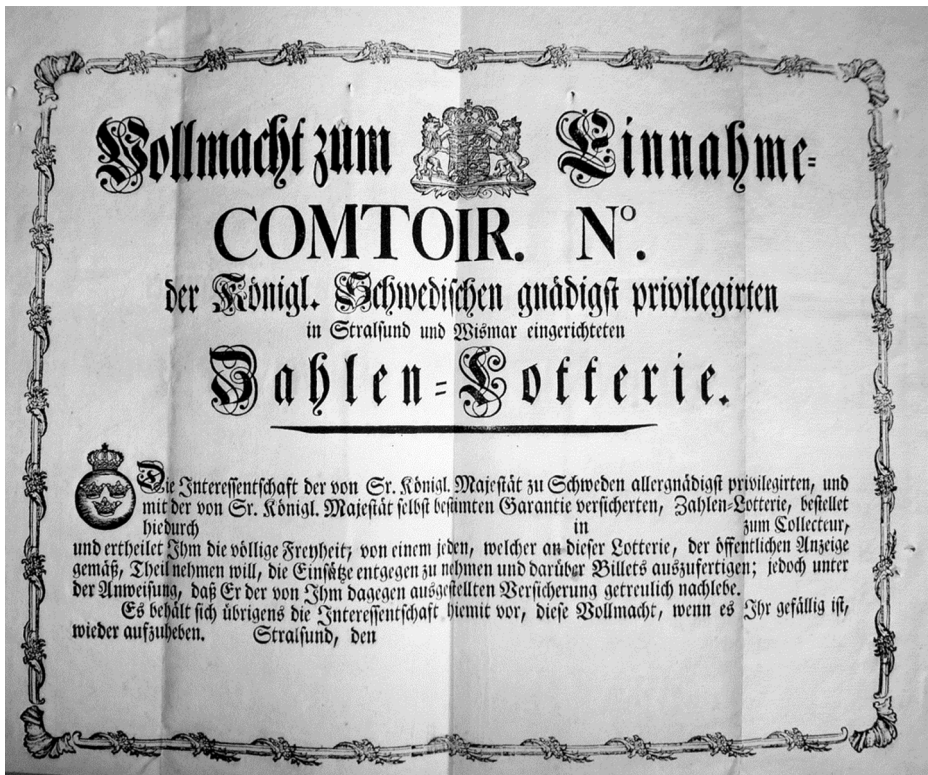 Vollmacht zum Einnahme-
COMTOIR. No.
der Königl. Schwedischen gnädigst privilegirten
in Stralsund und Wismar eingerichteten
Zahlen-Lotterie.
Die Interessentschaft der von Sr. Königl. Majestät zu Schweden allergnädigst privilegirten, und
mit der von Sr. Königl. Majestät selbst bestimten Garantie versicherten, Zahlen-Lotterie, bestellet
hiedurch in zum Collecteur,
und ertheilet Ihm die völlige Freyheit, von einem jeden, welcher an dieser Lotterie, der öffentlichen Anzeige
gemäß, Theil nehmen will, die Einsätze entgegen zu nehmen und darüber Billets auszufertigen; jedoch unter
der Anweisung, daß Er der von Ihm dagegen ausgestellten Versicherung getreulich nachlebe.
Es behält sich übrigens die Interessentschaft hiemit vor, diese Vollmacht, wenn es Ihr gefällig ist,
wieder aufzuheben. Stralsund, den